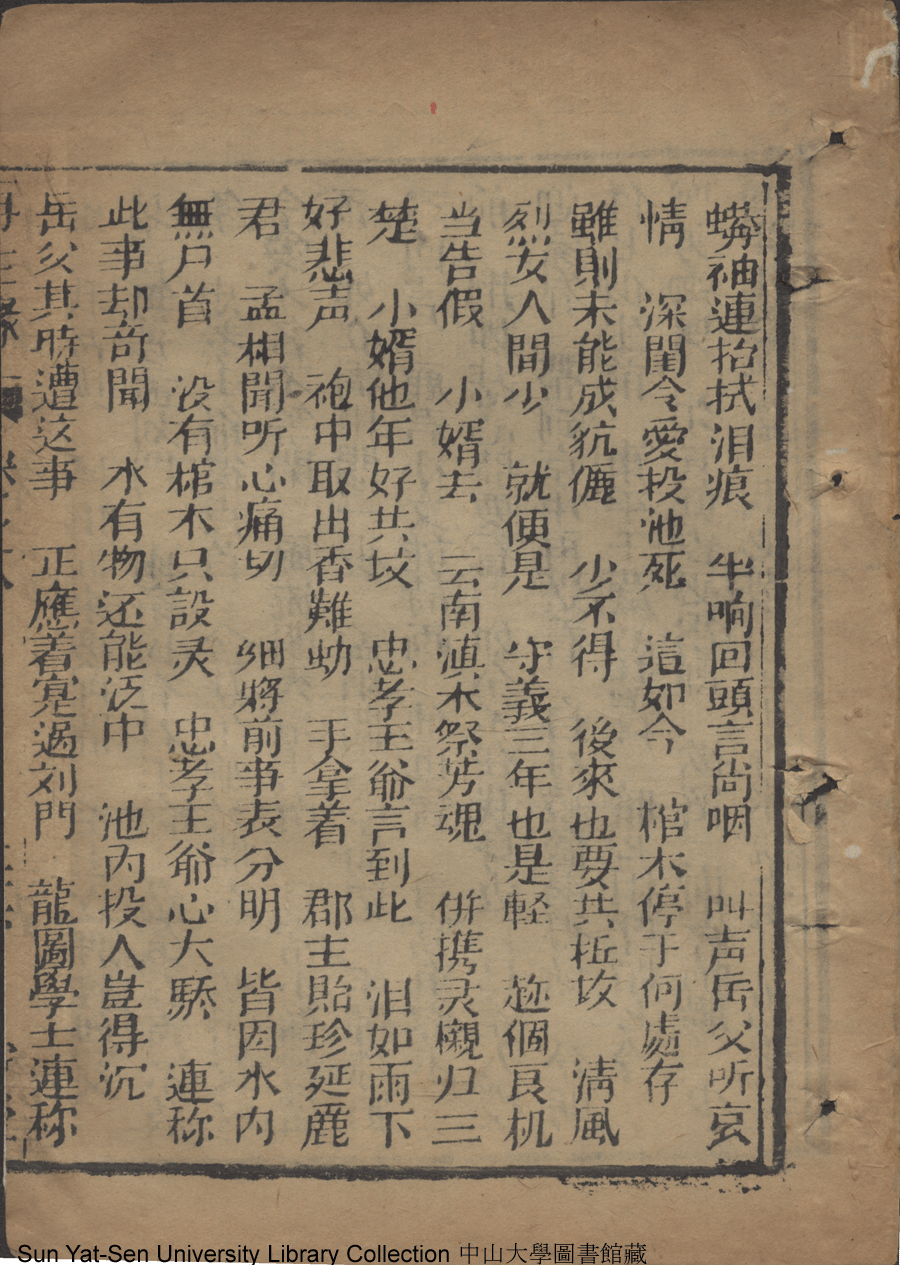 蟒袖連抬拭泪痕　半晌回頭言尚咽　叫声岳父听哀
情　深閨令愛投池死　這如今　棺木停于何處存
雖則未能成伉儷　少不得　後來也要共坵坟　清風
烈女人間少　就便是　守義三年也是輕　趂個良机
当告假　小婿去　云南滇水祭芳魂　併携灵櫬归三
楚　小婿他年好共坟　忠孝王爺言到此　泪如雨下
好悲声　袍中取出香難助　手拿着　郡主貽珍延鹿
君　孟相聞听心痛切　細將前事表分明　皆因水内
無尸首　没有棺木只設灵　忠孝王爺心大駭　連称
此事却奇聞　水有物还能泛中　池内投人豈得沉
岳父其時遭这事　正應着寃過刘門　龍圖學士連称
再生緣
Sun Yat-Sen University Library Collection 中山大學圖書館藏